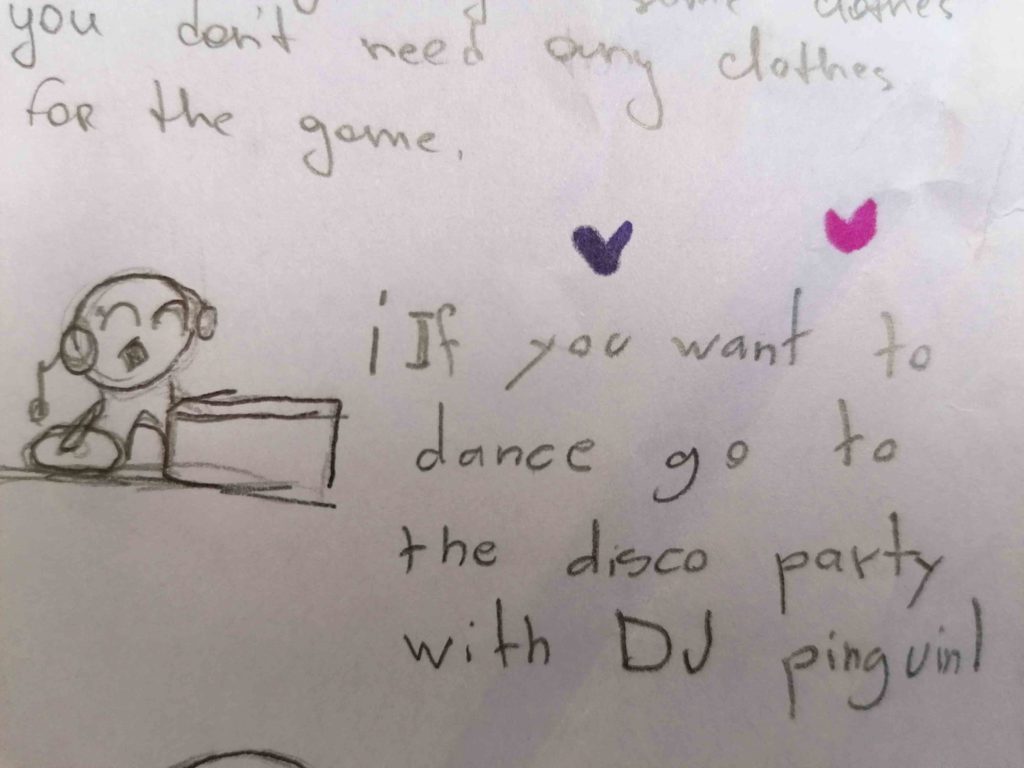 some clothes
you don't need any clothes
for the game.
¡If you want to
dance go to
the disco party
with DJ pinguin!